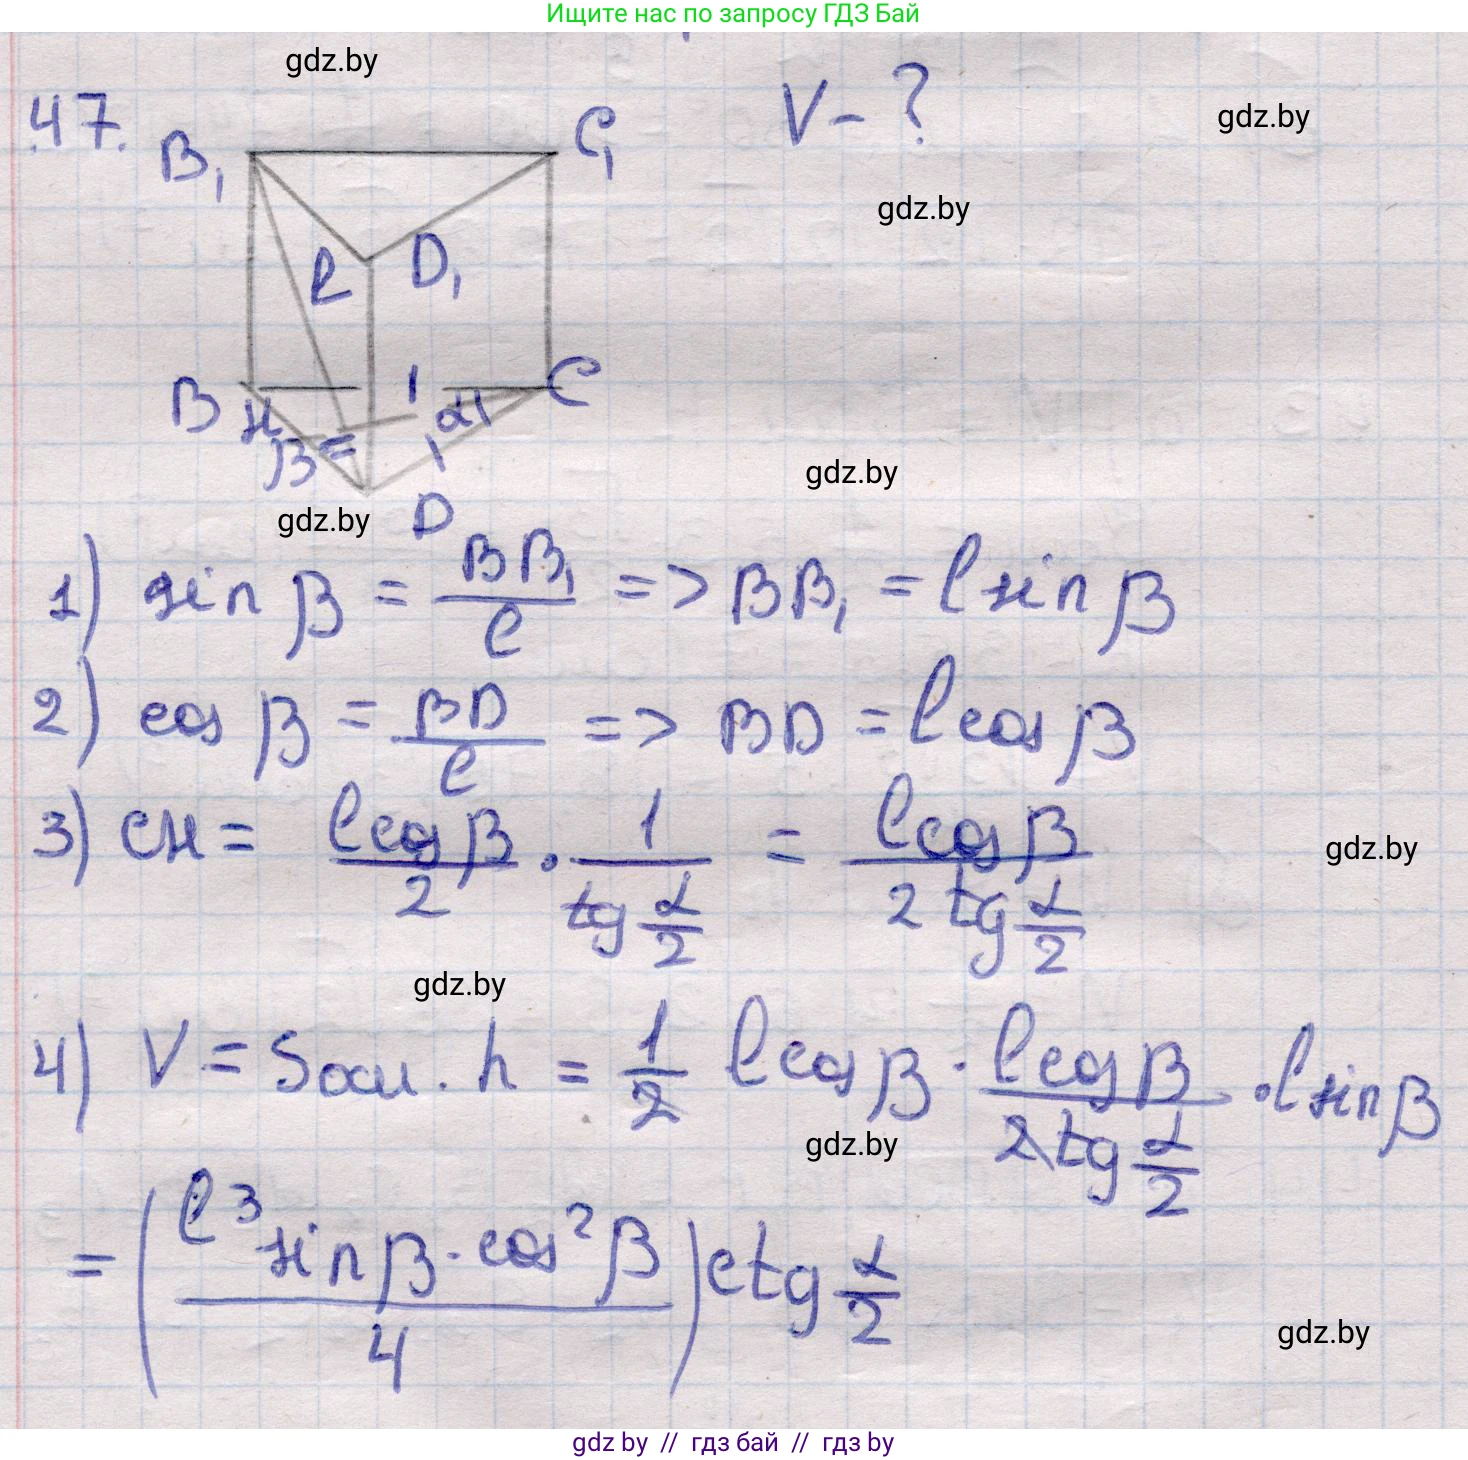 Ищите нас по запросу ГДЗ Бай
gdz.by
47.
V - ?
gdz.by
B₁
C₁
gdz.by
l
D₁
B
H
β
α
C
gdz.by
D
gdz.by
1) sin β = BB₁/l => BB₁ = l sin β
2) cos β = BD/l => BD = l cos β
3) CH = l cos β/2 · 1/tg α/2 = l cos β/2 tg α/2
gdz.by
gdz.by
4) V = Sосн. h = 1/2 l cos β · l cos β/2 tg α/2 · l sin β
gdz.by
= (l³ sin β · cos² β/4) ctg α/2
gdz.by
gdz by // гдз бай // гдз by